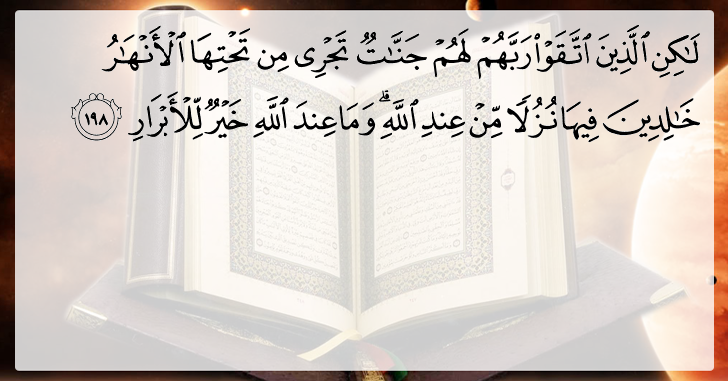 لَٰكِنِ ٱلَّذِينَ ٱتَّقَوْا۟ رَبَّهُمْ لَهُمْ جَنَّٰتٌ تَجْرِى مِن تَحْتِهَا ٱلْأَنْهَٰرُ
خَٰلِدِينَ فِيهَا نُزُلًا مِّنْ عِندِ ٱللَّهِ ۗ وَمَا عِندَ ٱللَّهِ خَيْرٌ لِّلْأَبْرَارِ ١٩٨